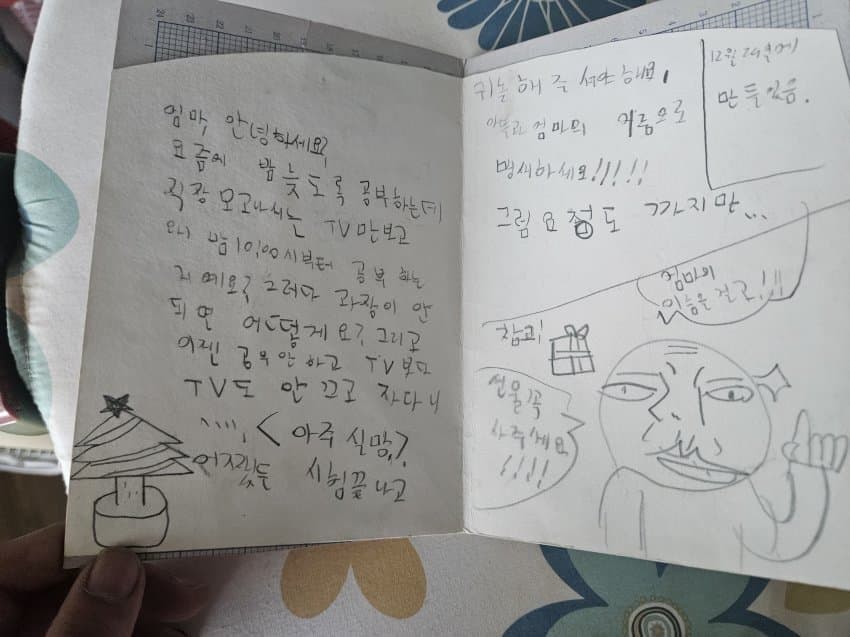 엄마 안녕하세요?
요즘에 밤 늦도록 공부하는데
직장 오고나서는 TV만보고
왜 밤 10:00시부터 공부 하는
거예요? 그러다 과장이 안
되면 어떻게요? 그리고
어젠 공부 안 하고 TV보다
TV도 안 끄고 자다니
아주 실망,?
어쨌든 시험끝나고
해 주셔야 해요,
엄마의 이름으로
맹세하세요!!!!!
그럼 요점도 까지만...
12월 24일에
만들었음.
엄마의
이름을 걸고!!!
참고!
선물꼭
사주세요
!!!!